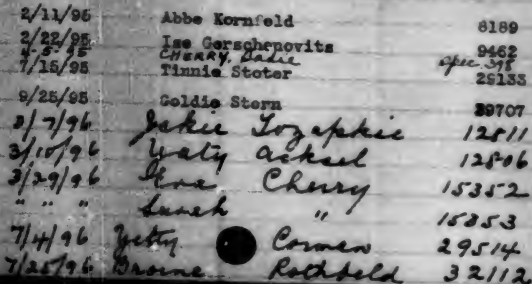 2/11/95 Abbe Kornfeld 8189
2/22/95 Ise Gerschenovits 9462
4-5-95 CHERRY, Sadie Spec. 395
7/15/95 Tinnie Stoter 29133
9/25/95 Goldie Stern 39707
3/7/96 Jakie 12811
3/10/96 12806
3/29/96 Eva Cherry 15352
" " " Sarah " 15353
7/4/96 Yetty Cormen 29514
7/25/96 Rothbeld 32112